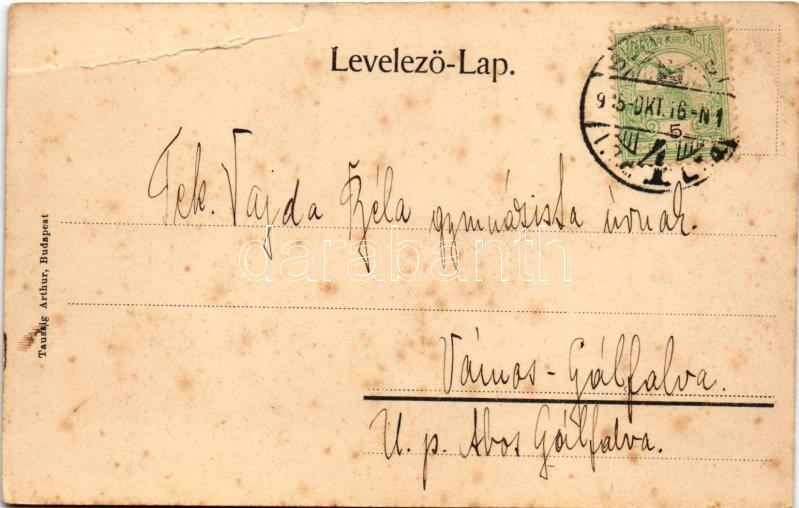 Levelezö-Lap.
MAGYAR KIR. POSTA
5
905-OKT.16-N1
Tek. Vajda Béla gymnázista úrnak.
darabanth
Vámos-Gálfalva.
U. p. Abos Gálfalva.
Taussig Arthur, Budapest